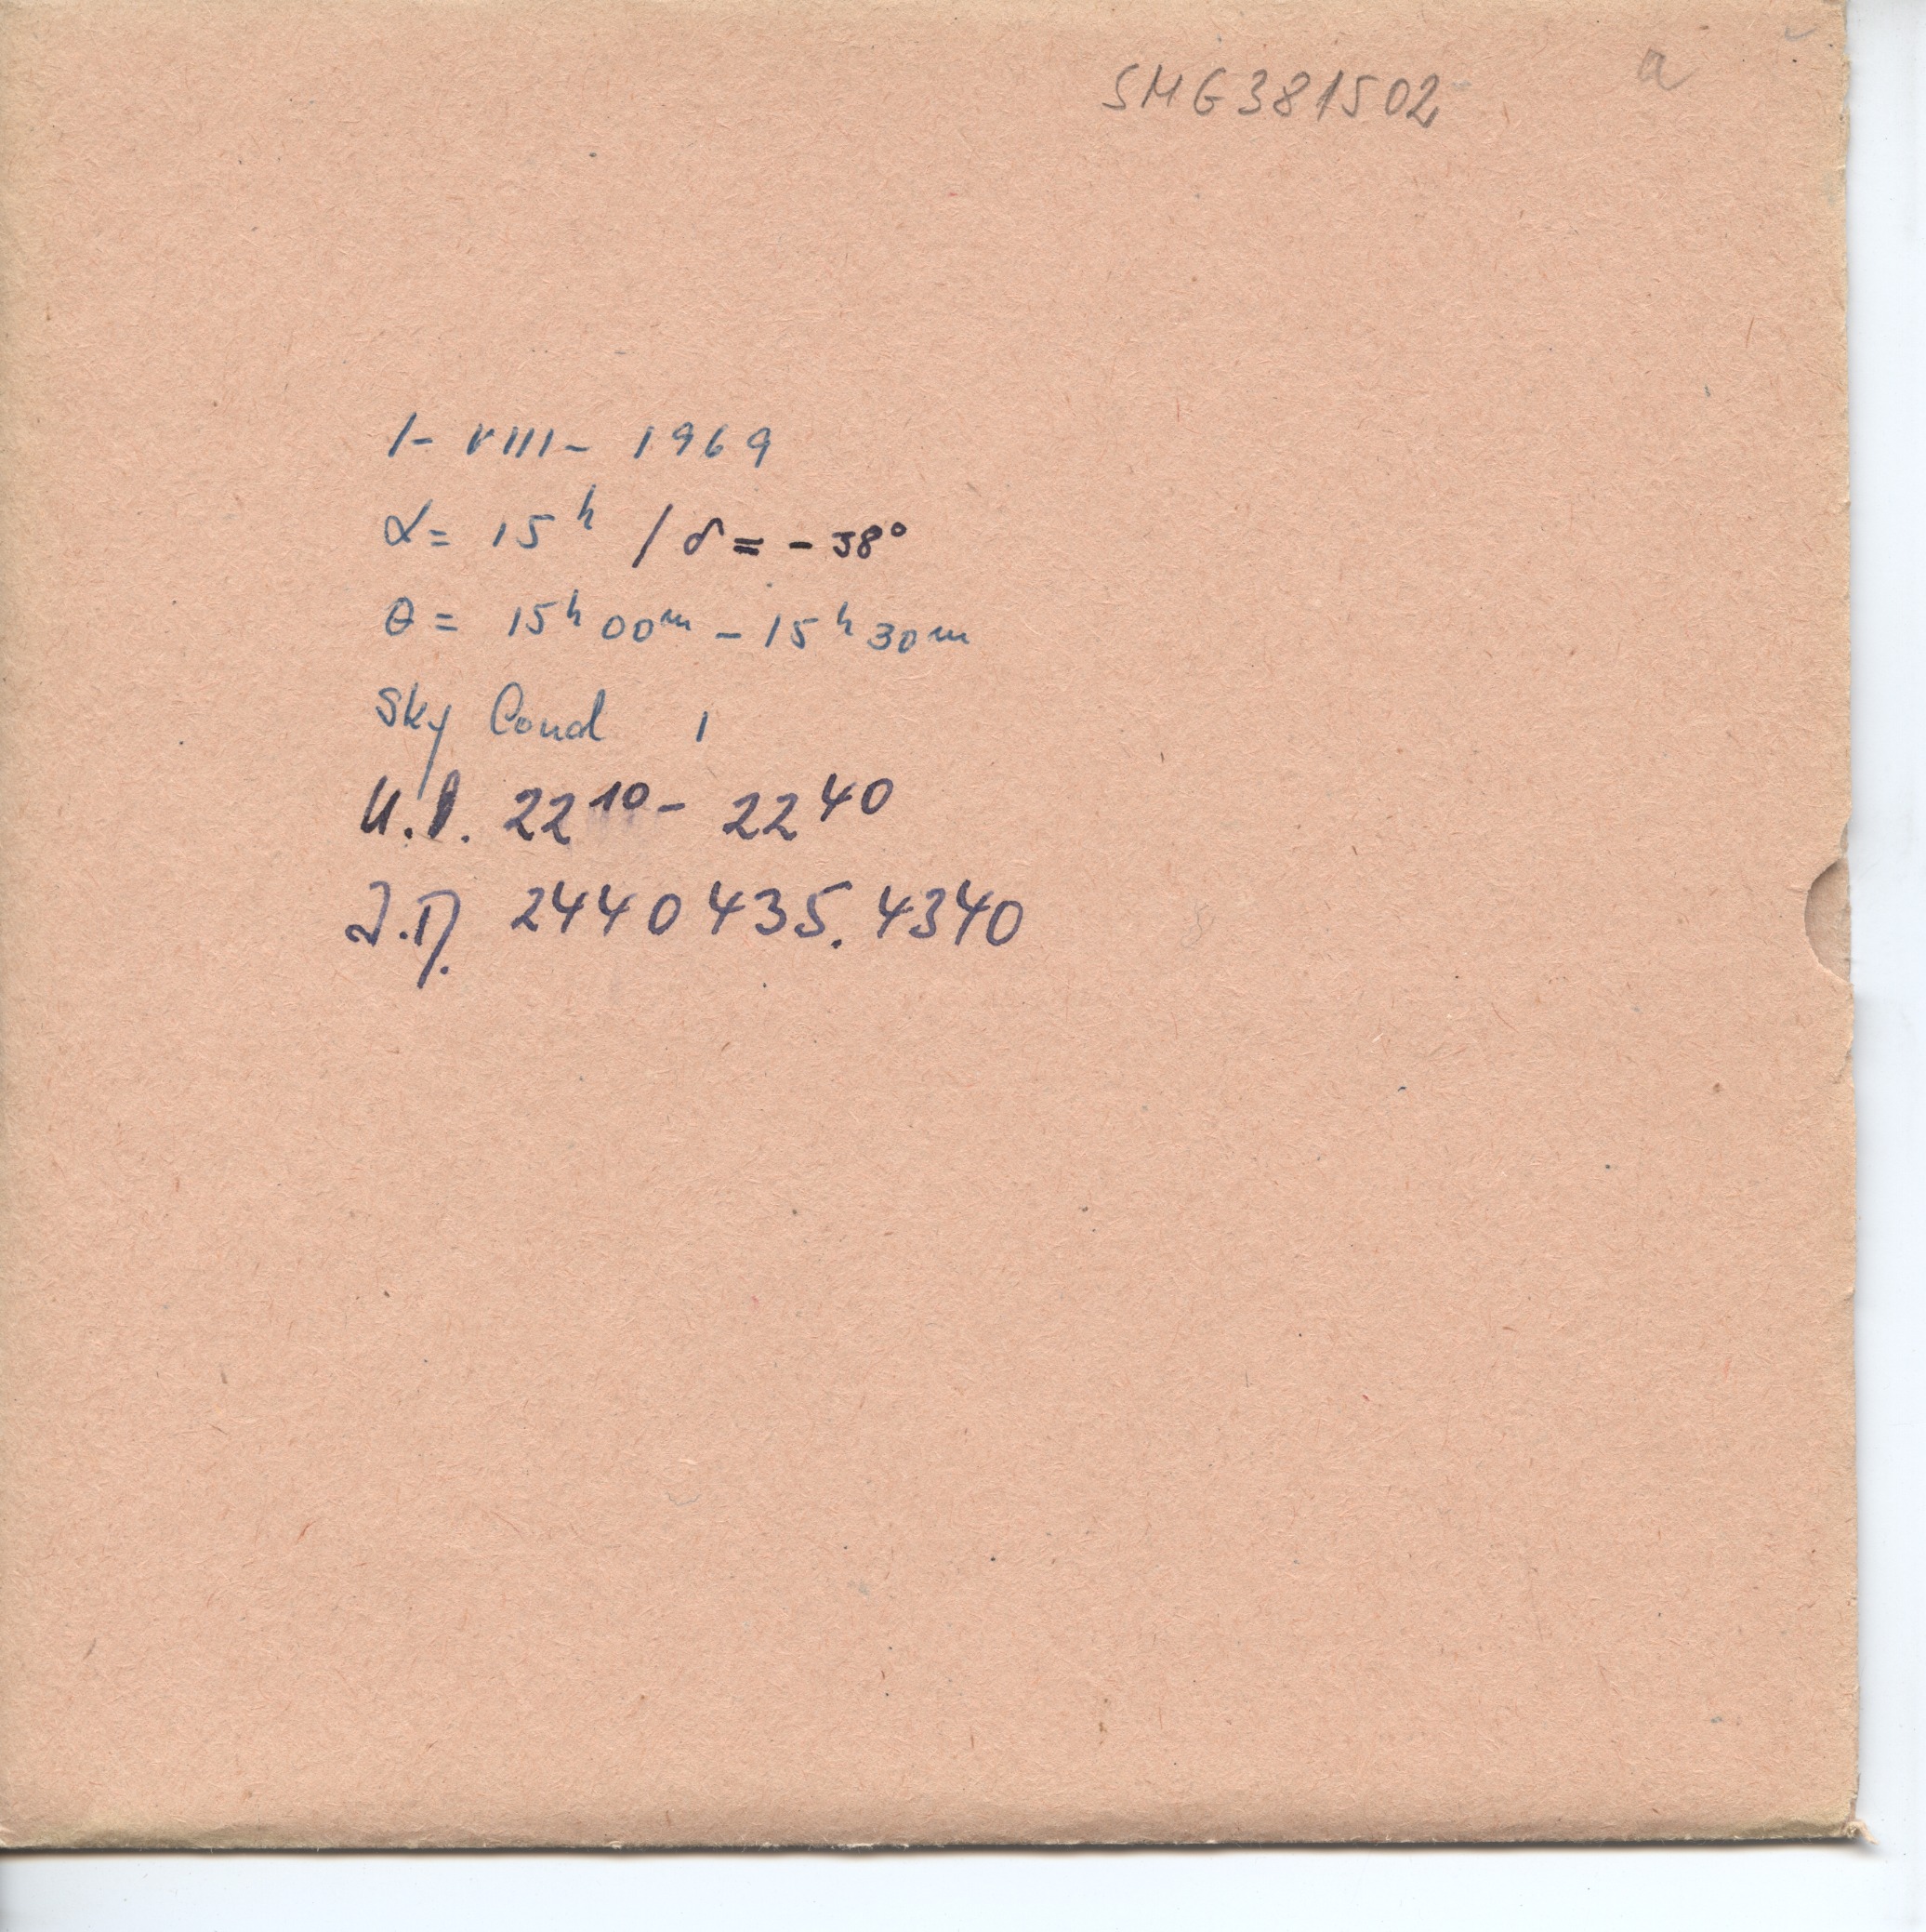 SMG381502 a
1- VIII- 1969
α= 15ʰ / δ = - 38°
θ = 15ʰ 00ᵐ - 15ʰ 30ᵐ
Sky Cond 1
U.T. 22¹⁰- 22⁴⁰
J.D. 2440435.4340